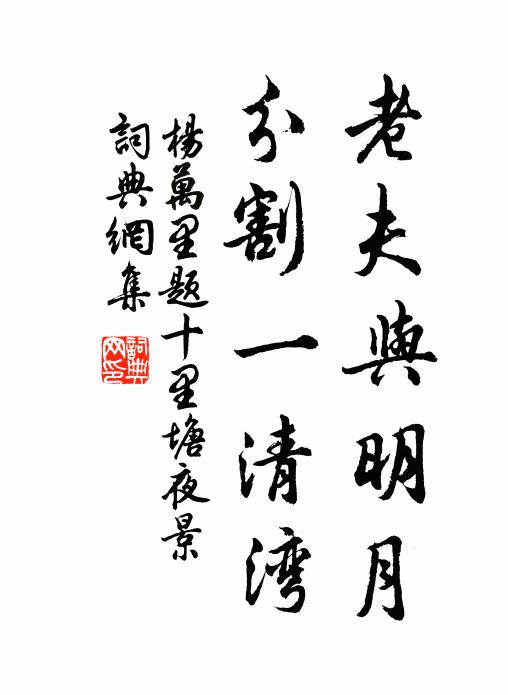 老夫與明月
分割一清湾
楊萬里題十里塘夜景
詞典網集
詞典网印